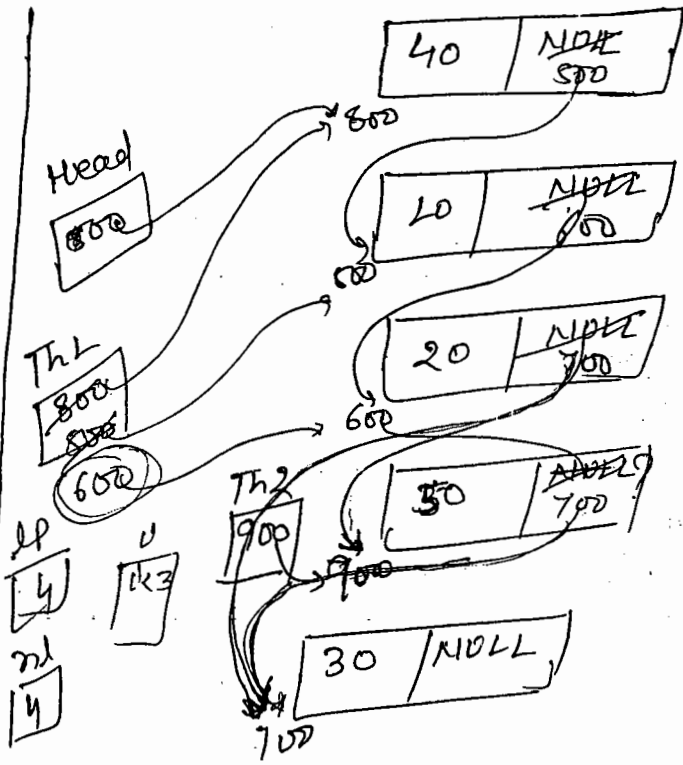 40 NULL
500
800
Head
800
10 NULL
600
500
Th1
800
500
600
20 NULL
700
600
Th2
900
50 NULL
700
900
lp
4
i
1 2 3
nl
4
30 NULL
700